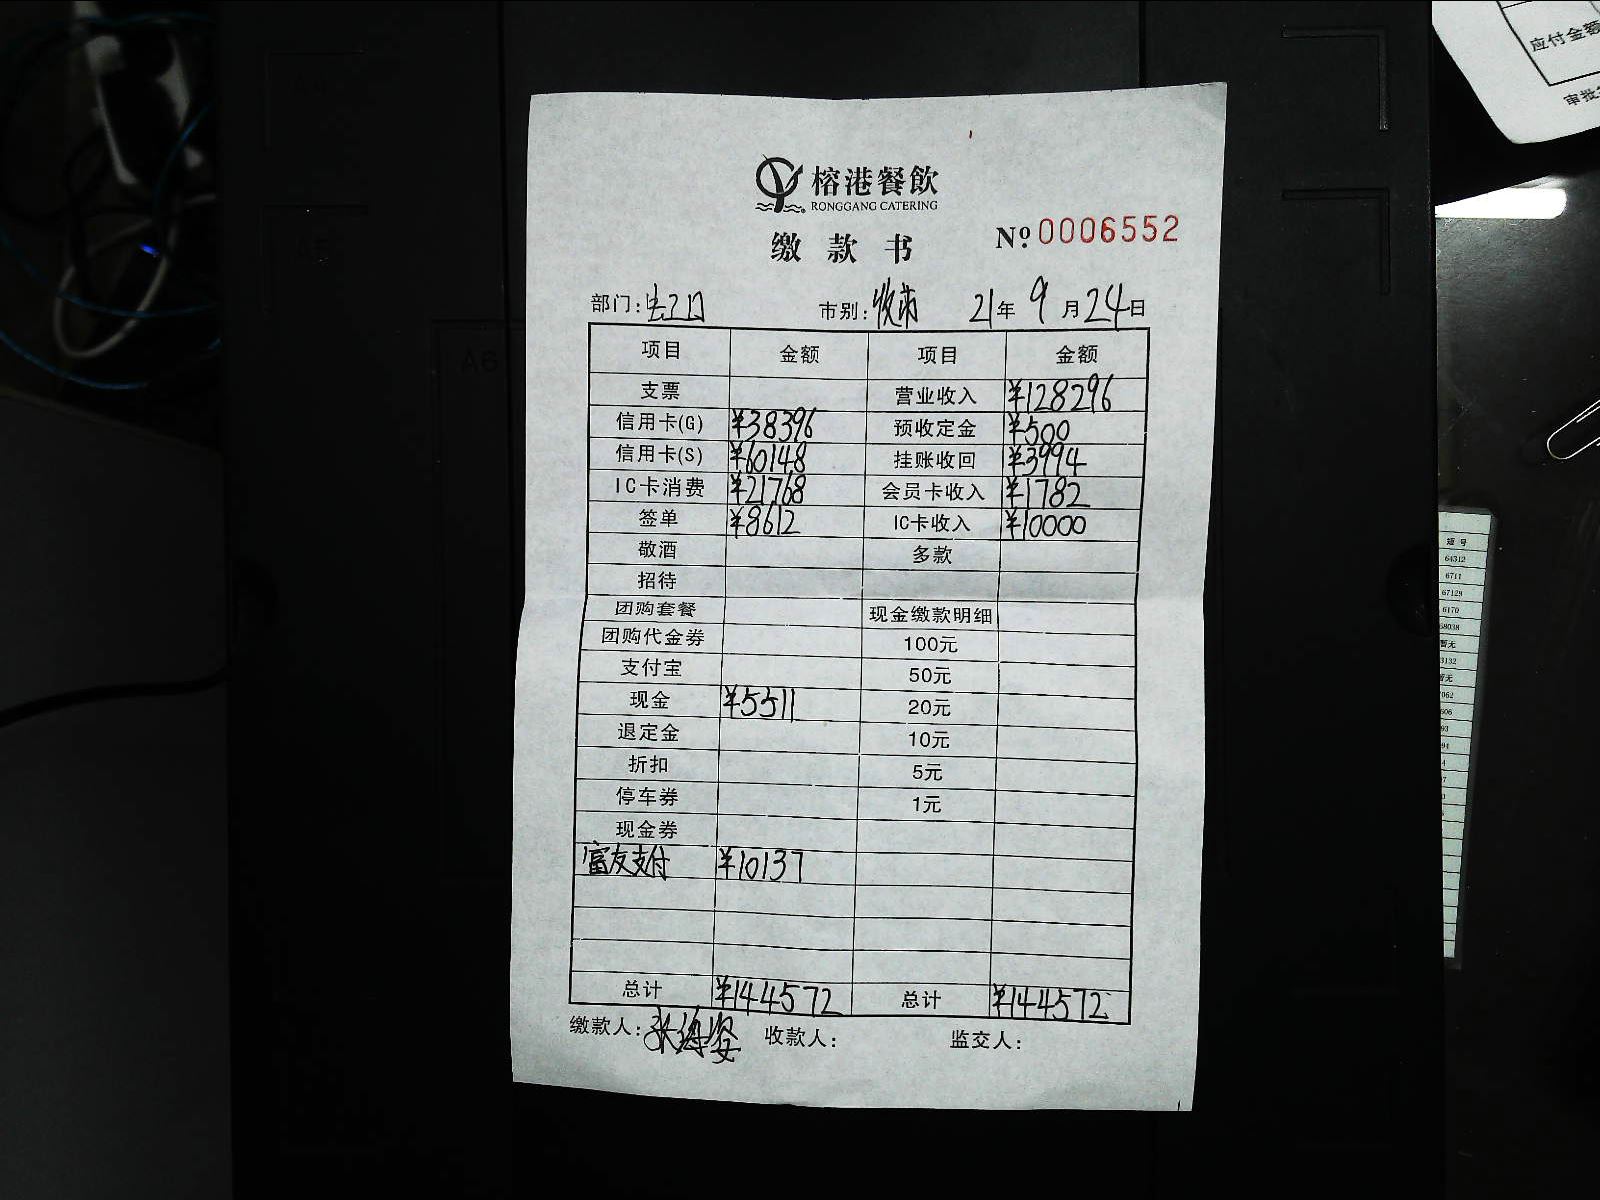 应付金额
榕港餐飲
RONGGANG CATERING
缴款书 №0006552
部门: 市别:收市 21年9月24日
项目 金额 项目 金额
支票 营业收入 ¥128296
信用卡(G) ¥38396 预收定金 ¥500
信用卡(S) ¥60148 挂账收回 ¥3994
IC卡消费 ¥21768 会员卡收入 ¥1782
签单 ¥8612 IC卡收入 ¥10000
敬酒 多款
招待
团购套餐 现金缴款明细
团购代金券 100元
支付宝 50元
现金 ¥5511 20元
退定金 10元
折扣 5元
停车券 1元
现金券
富友支付 ¥10137
总计 ¥144572 总计 ¥144572
缴款人:张海姿 收款人: 监交人:
A6
短号
64312
6711
67129
6170
68038
暂无